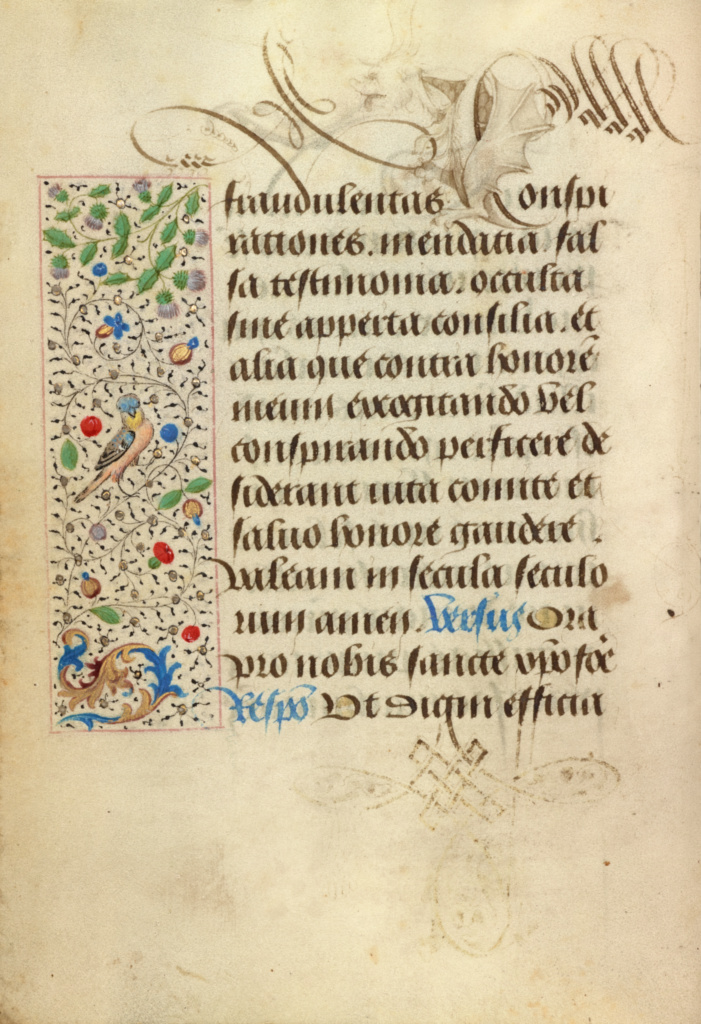 fraudulentas Conspi
rationes. mendatia fal
sa testimonia. occulta
siue apperta consilia. et
alia que contra honorē
meum excogitando vel
conspirando perficere de
siderant iuta comite et
saluo honore gaudere .
valeam in secula seculo
rum amen. Versus Ora
pro nobis sancte xp̄ofo᷒e
Respō Vt digni efficia